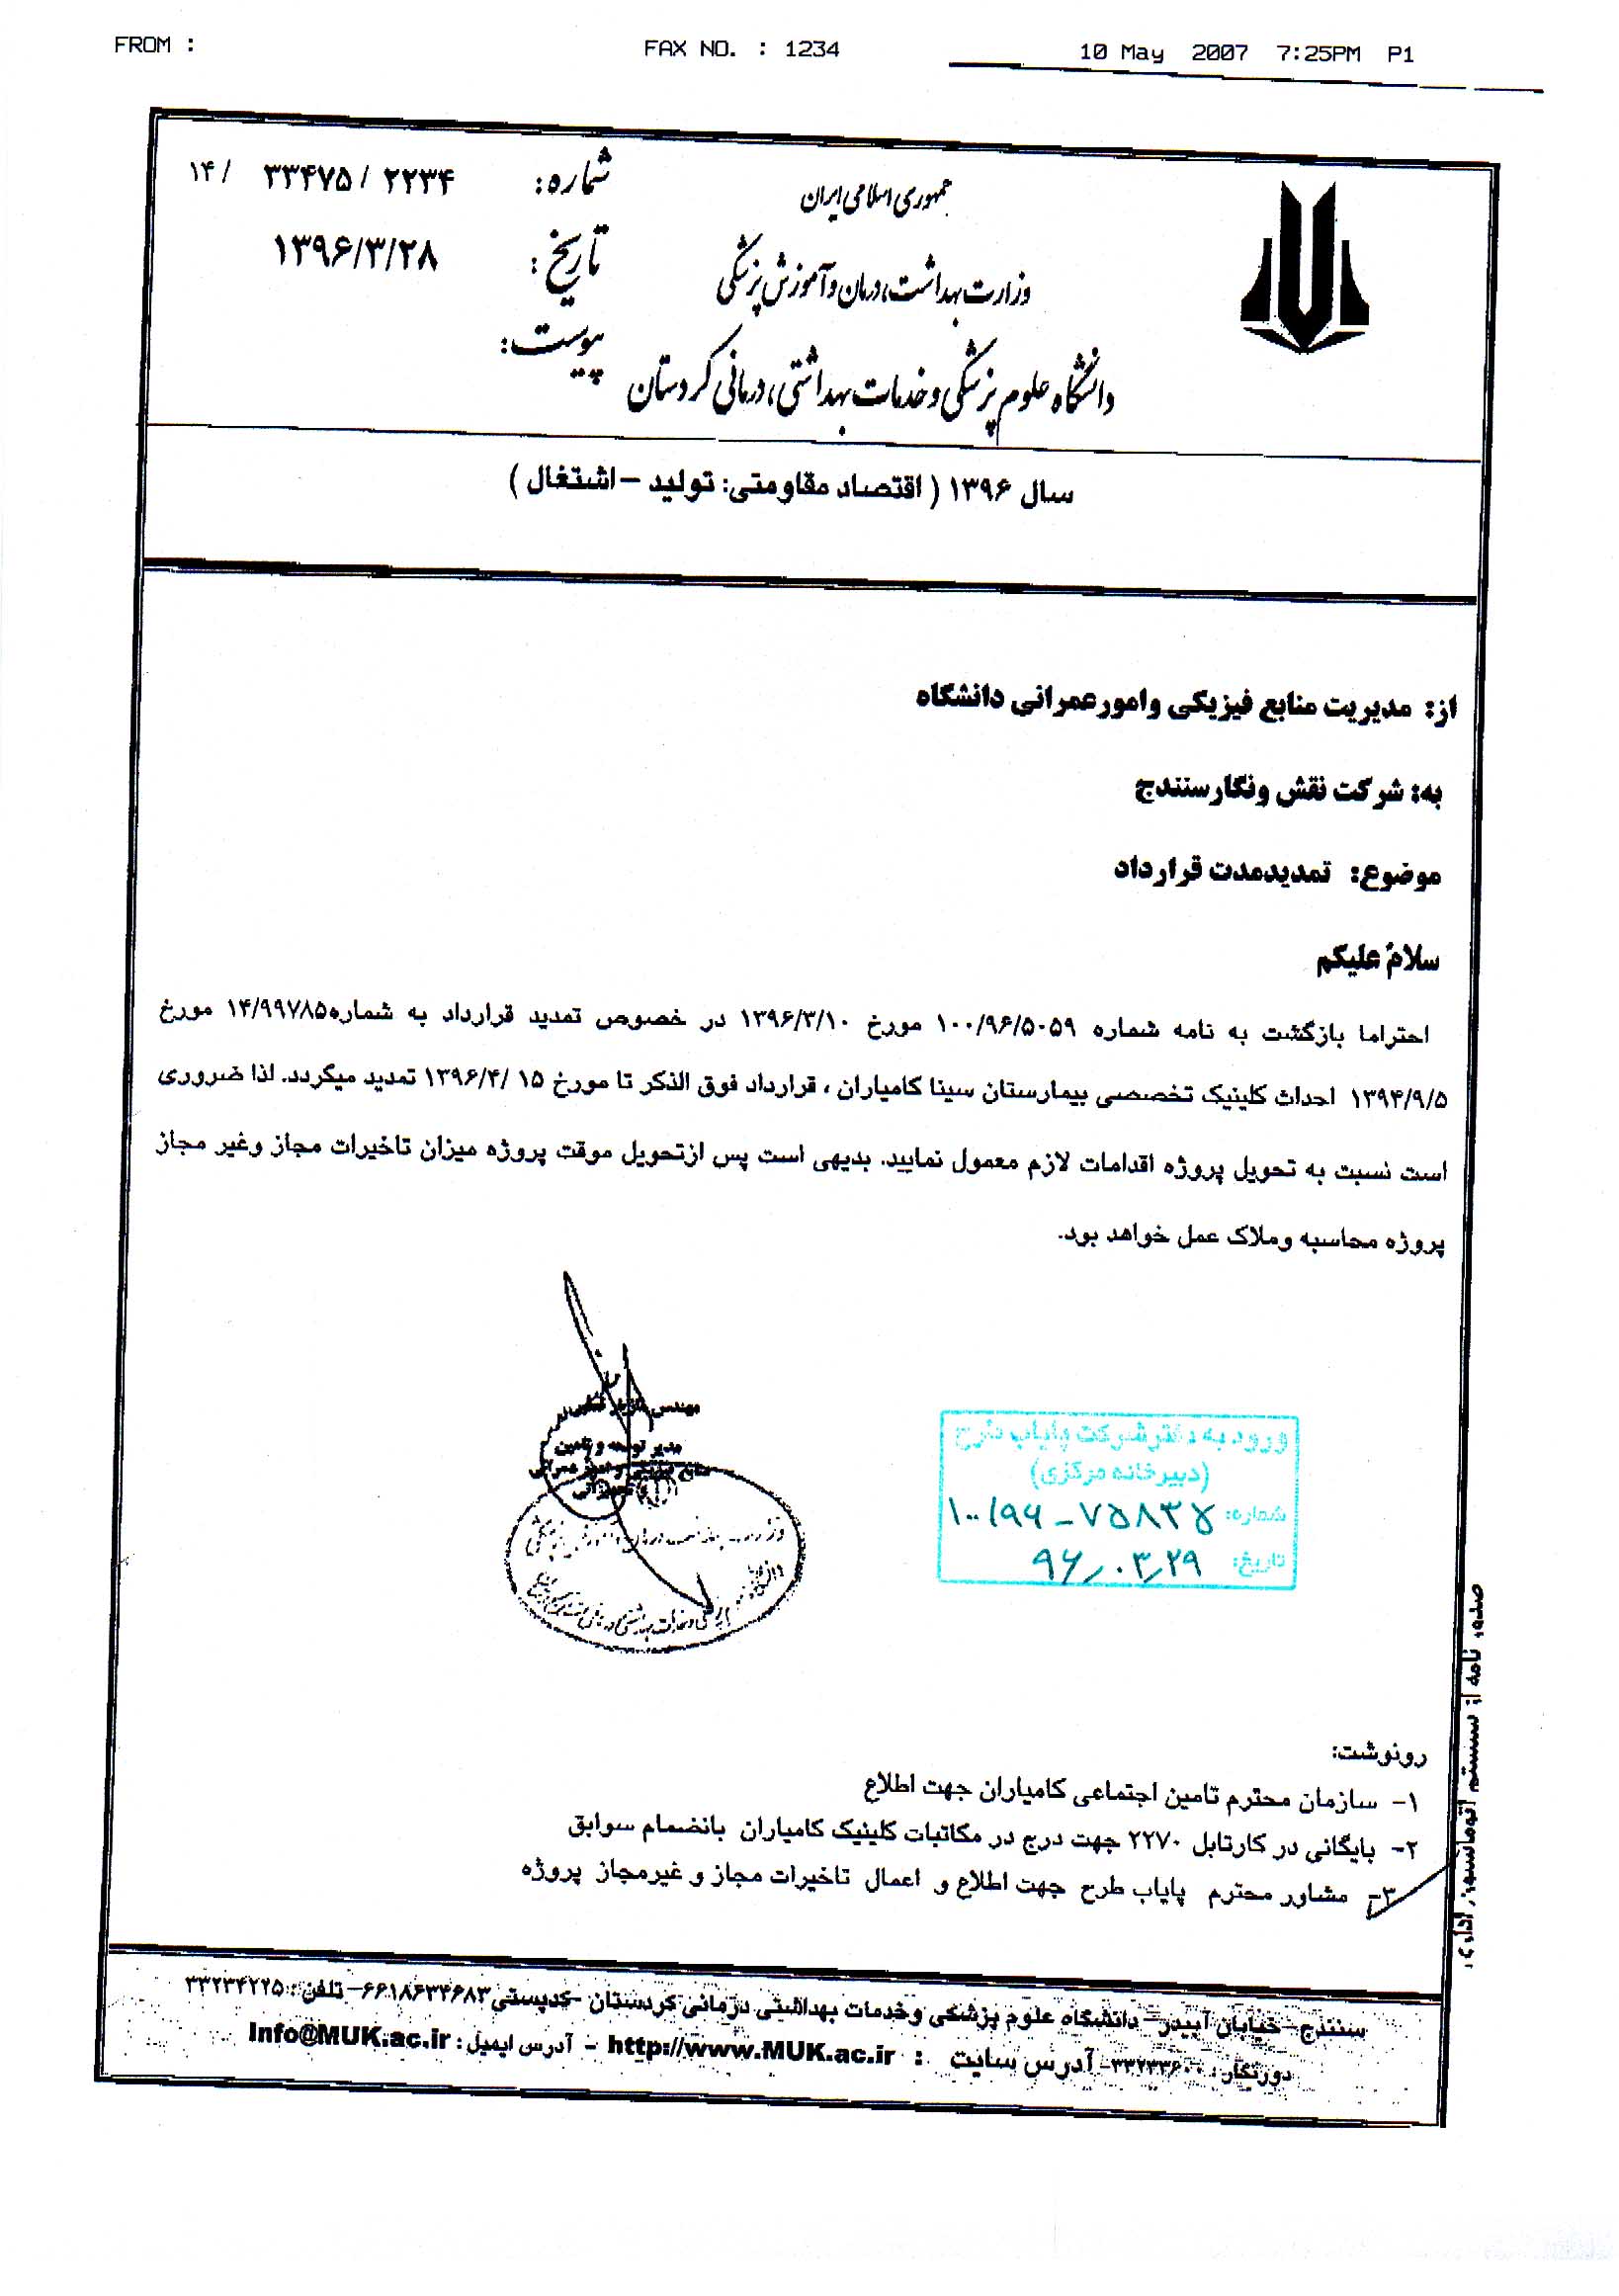 FROM :    FAX NO. : 1234    10 May 2007 7:25PM P1
جمهوری اسلامی ایران
وزارت بهداشت، درمان و آموزش پزشکی
دانشگاه علوم پزشکی و خدمات بهداشتی، درمانی کردستان
شماره: ۲۲۳۴ / ۳۳۴۷۵ / ۱۴
تاریخ: ۱۳۹۶/۳/۲۸
پیوست:
سال ۱۳۹۶ ( اقتصاد مقاومتی: تولید – اشتغال )
از: مدیریت منابع فیزیکی وامورعمرانی دانشگاه
به: شرکت نقش ونگارسنندج
موضوع: تمدیدمدت قرارداد
سلام علیکم
احتراما بازگشت به نامه شماره ۱۰۰/۹۶/۵۰۵۹ مورخ ۱۳۹۶/۳/۱۰ در خصوص تمدید قرارداد به شماره۱۴/۹۹۷۸۵ مورخ
۱۳۹۴/۹/۵ احداث کلینیک تخصصی بیمارستان سینا کامیاران ، قرارداد فوق الذکر تا مورخ ۱۵ /۱۳۹۶/۴ تمدید میگردد. لذا ضروری
است نسبت به تحویل پروژه اقدامات لازم معمول نمایید. بدیهی است پس ازتحویل موقت پروژه میزان تاخیرات مجاز وغیر مجاز
پروژه محاسبه وملاک عمل خواهد بود.
مهندس
مدیر توسعه و تامین
منابع فیزیکی و امور عمرانی
ورود به دفتر شرکت پایاب طرح
(دبیرخانه مرکزی)
شماره: ۱۰۰/۹۶-۷۵۸۳۵
تاریخ: ۹۶/۰۳/۲۹
صدور نامه از سیستم اتوماسیون اداری
رونوشت:
۱- سازمان محترم تامین اجتماعی کامیاران جهت اطلاع
۲- بایگانی در کارتابل ۲۲۷۰ جهت درج در مکاتبات کلینیک کامیاران بانضمام سوابق
۳- مشاور محترم پایاب طرح جهت اطلاع و اعمال تاخیرات مجاز و غیرمجاز پروژه
سنندج– خیابان آبیدر– دانشگاه علوم پزشکی وخدمات بهداشتی درمانی کردستان -کدپستی۶۶۱۸۶۳۴۶۸۳– تلفن : ۳۳۲۳۴۲۲۵
دورنگار: ۳۳۲۳۳۶۰۰- آدرس سایت : http://www.MUK.ac.ir - آدرس ایمیل : Info@MUK.ac.ir